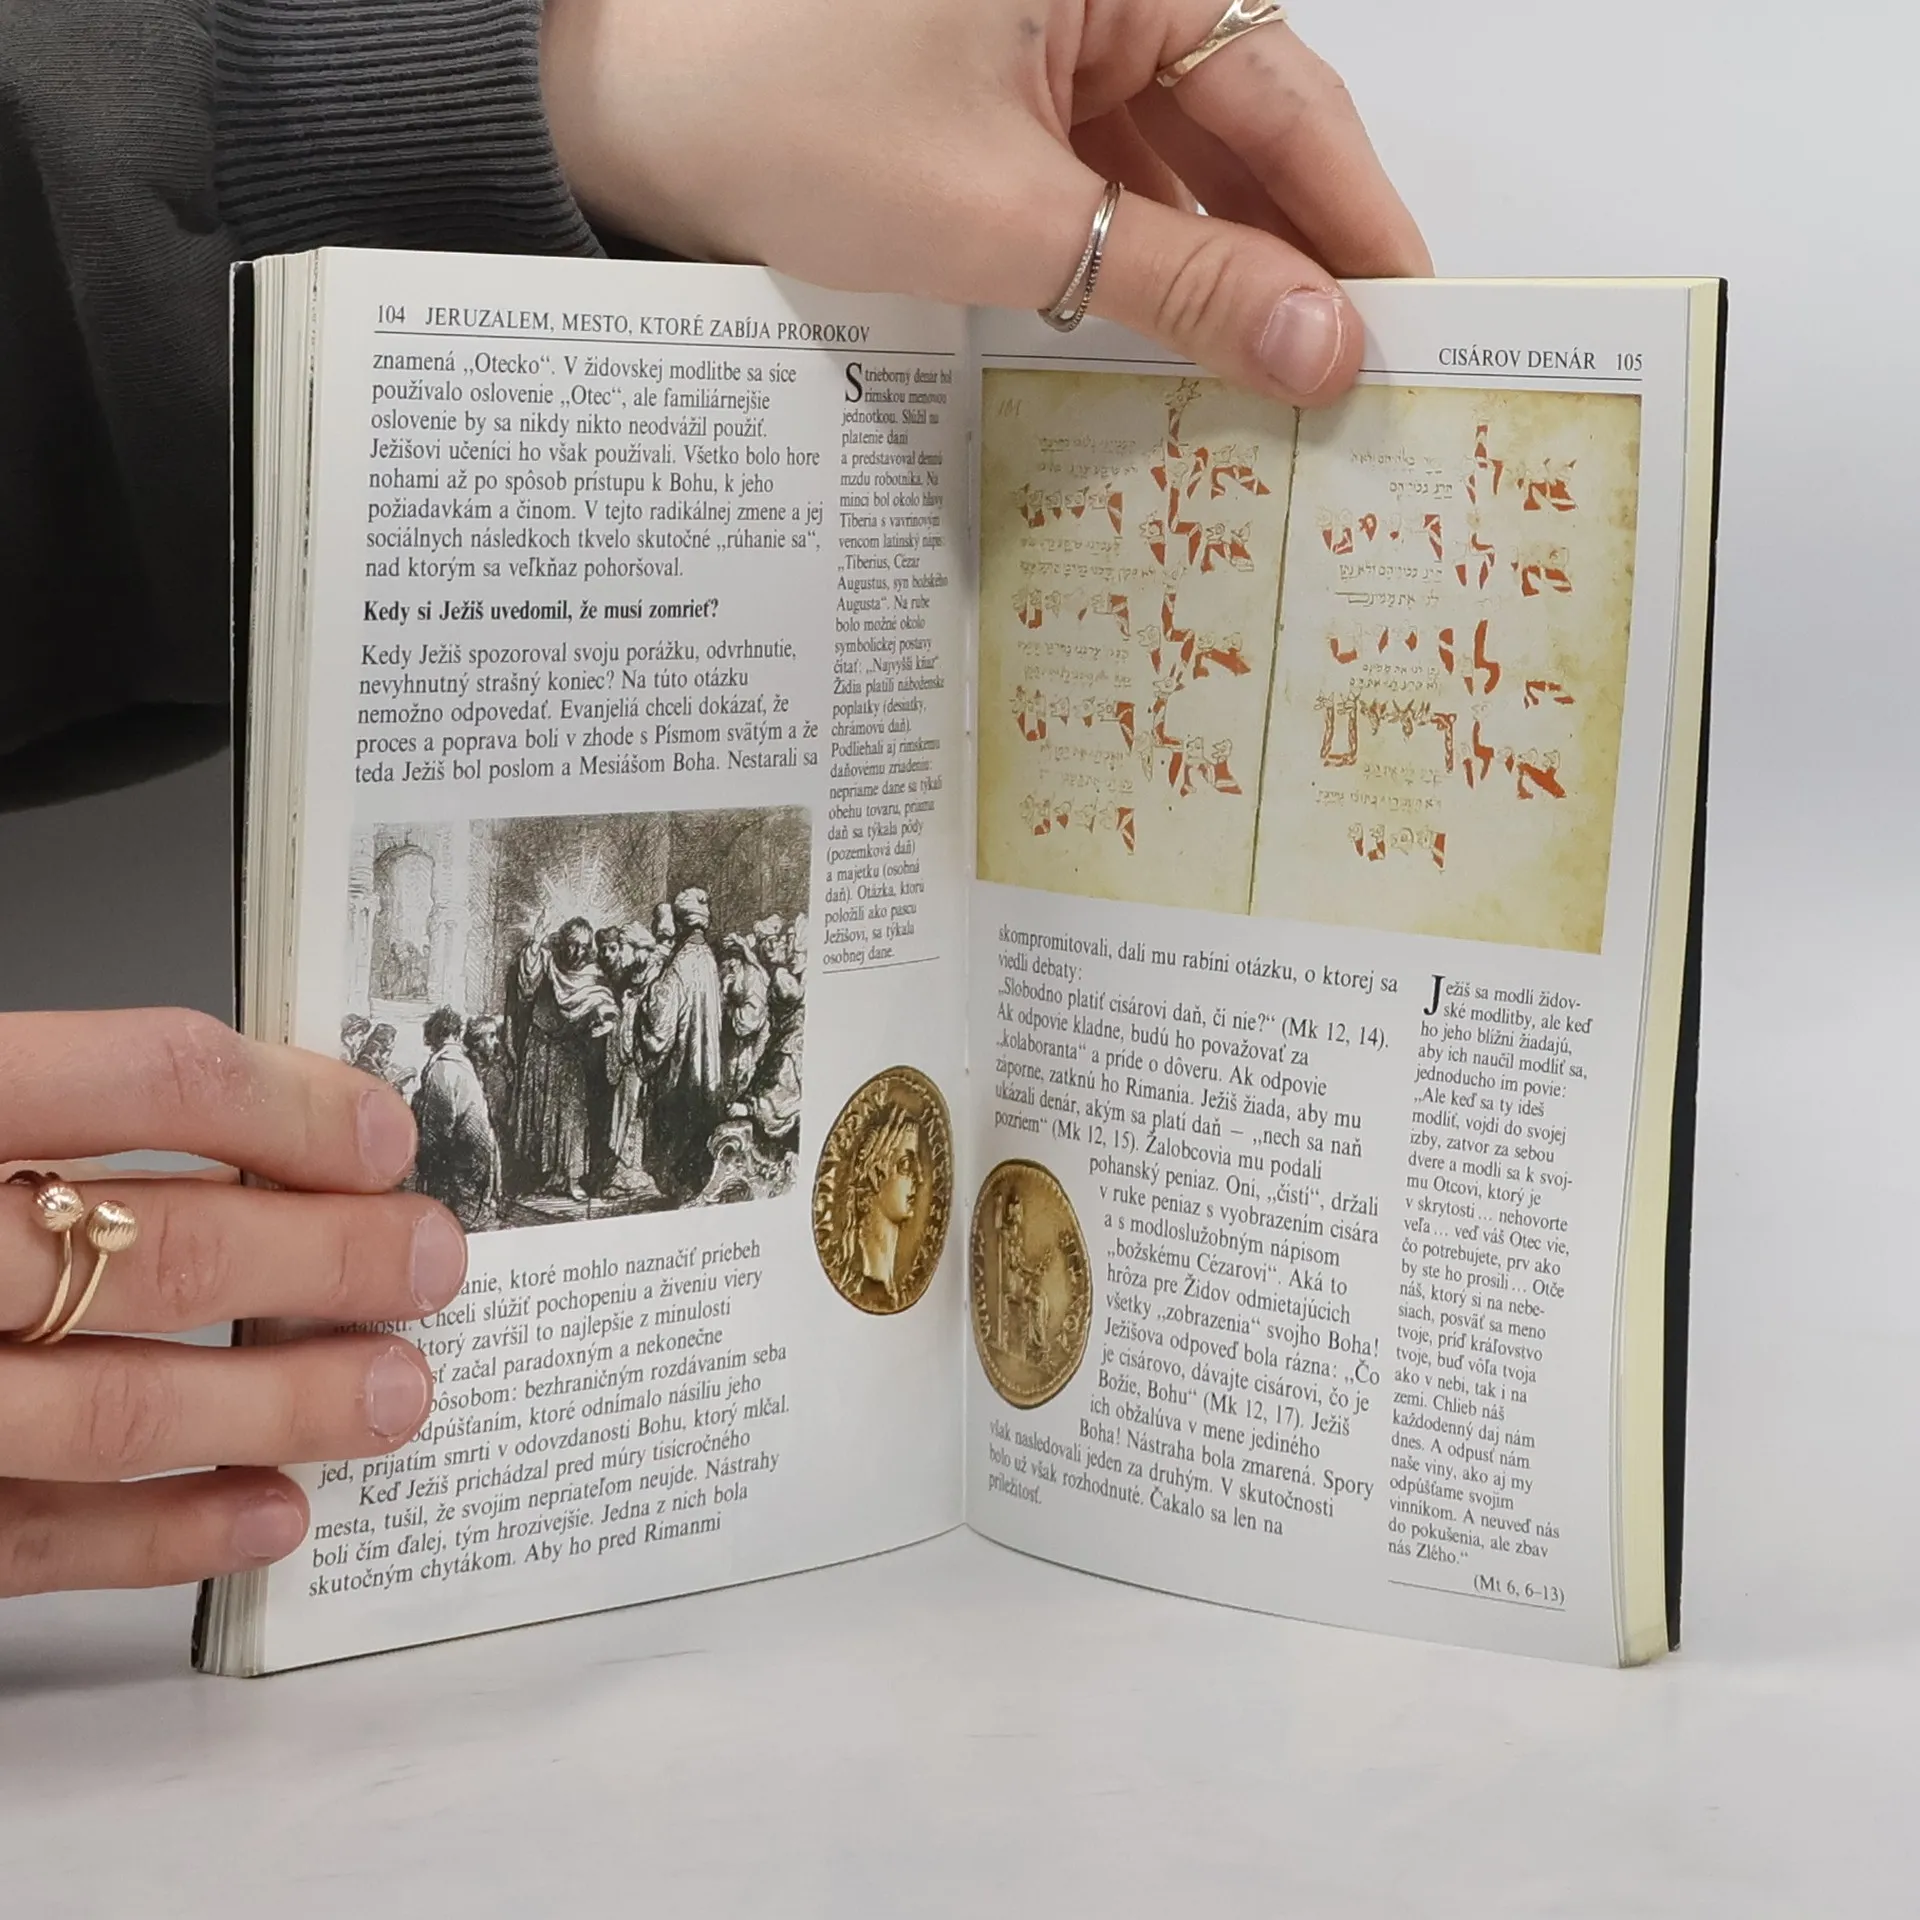 104 JERUZALEM, MESTO, KTORÉ ZABÍJA PROROKOV
znamená „Otecko“. V židovskej modlitbe sa síce
používalo oslovenie „Otec“, ale familiárnejšie
oslovenie by sa nikdy nikto neodvážil použiť.
Ježišovi učeníci ho však používali. Všetko bolo hore
nohami až po spôsob prístupu k Bohu, k jeho
požiadavkám a činom. V tejto radikálnej zmene a jej
sociálnych následkoch tkvelo skutočné „rúhanie sa“,
nad ktorým sa veľkňaz pohoršoval.
Kedy si Ježiš uvedomil, že musí zomrieť?
Kedy Ježiš spozoroval svoju porážku, odvrhnutie,
nevyhnutný strašný koniec? Na túto otázku
nemožno odpovedať. Evanjeliá chceli dokázať, že
proces a poprava boli v zhode s Písmom svätým a že
teda Ježiš bol poslom a Mesiášom Boha. Nestarali sa
anie, ktoré mohlo naznačiť priebeh
Chceli slúžiť pochopeniu a živeniu viery
ktorý zavŕšil to najlepšie z minulosti
sť začal paradoxným a nekonečne
pôsobom: bezhraničným rozdávaním seba
odpúšťaním, ktoré odnímalo násiliu jeho
jed, prijatím smrti v odovzdanosti Bohu, ktorý mlčal.
Keď Ježiš prichádzal pred múry tisícročného
mesta, tušil, že svojim nepriateľom neujde. Nástrahy
boli čím ďalej, tým hrozivejšie. Jedna z nich bola
skutočným chytákom. Aby ho pred Rimanmi
Strieborný denár bol
rímskou menovou
jednotkou. Slúžil na
platenie daní
a predstavoval dennú
mzdu robotníka. Na
minci bol okolo hlavy
Tiberia s vavrínovým
vencom latinský nápis:
„Tiberius, Cézar
Augustus, syn božského
Augusta“. Na rube
bolo možné okolo
symbolickej postavy
čítať: „Najvyšší kňaz“
Židia platili náboženské
poplatky (desiatky,
chrámovú daň).
Podliehali aj rímskemu
daňovému zriadeniu:
nepriame dane sa týkali
obehu tovaru, priama
daň sa týkala pôdy
(pozemková daň)
a majetku (osobná
daň). Otázka, ktorú
položili ako pascu
Ježišovi, sa týkala
osobnej dane.
CISÁROV DENÁR 105
skompromitovali, dali mu rabíni otázku, o ktorej sa
viedli debaty:
„Slobodno platiť cisárovi daň, či nie?“ (Mk 12, 14).
Ak odpovie kladne, budú ho považovať za
„kolaboranta“ a príde o dôveru. Ak odpovie
záporne, zatknú ho Rimania. Ježiš žiada, aby mu
ukázali denár, akým sa platí daň – „nech sa naň
pozriem“ (Mk 12, 15). Žalobcovia mu podali
pohanský peniaz. Oni, „čistí“, držali
v ruke peniaz s vyobrazením cisára
a s modloslužobným nápisom
„božskému Cézarovi“. Aká to
hrôza pre Židov odmietajúcich
všetky „zobrazenia“ svojho Boha!
Ježišova odpoveď bola rázna: „Čo
je cisárovo, dávajte cisárovi, čo je
Božie, Bohu“ (Mk 12, 17). Ježiš
ich obžalúva v mene jediného
Boha! Nástraha bola zmarená. Spory
však nasledovali jeden za druhým. V skutočnosti
bolo už však rozhodnuté. Čakalo sa len na
príležitosť.
Ježiš sa modlí židov-
ské modlitby, ale keď
ho jeho blížni žiadajú,
aby ich naučil modliť sa,
jednoducho im povie:
„Ale keď sa ty ideš
modliť, vojdi do svojej
izby, zatvor za sebou
dvere a modli sa k svoj-
mu Otcovi, ktorý je
v skrytosti... nehovorte
veľa... veď váš Otec vie,
čo potrebujete, prv ako
by ste ho prosili... Otče
náš, ktorý si na nebe-
siach, posväť sa meno
tvoje, príď kráľovstvo
tvoje, buď vôľa tvoja
ako v nebi, tak i na
zemi. Chlieb náš
každodenný daj nám
dnes. A odpusť nám
naše viny, ako aj my
odpúšťame svojim
vinníkom. A neuveď nás
do pokušenia, ale zbav
nás Zlého.“
(Mt 6, 6–13)